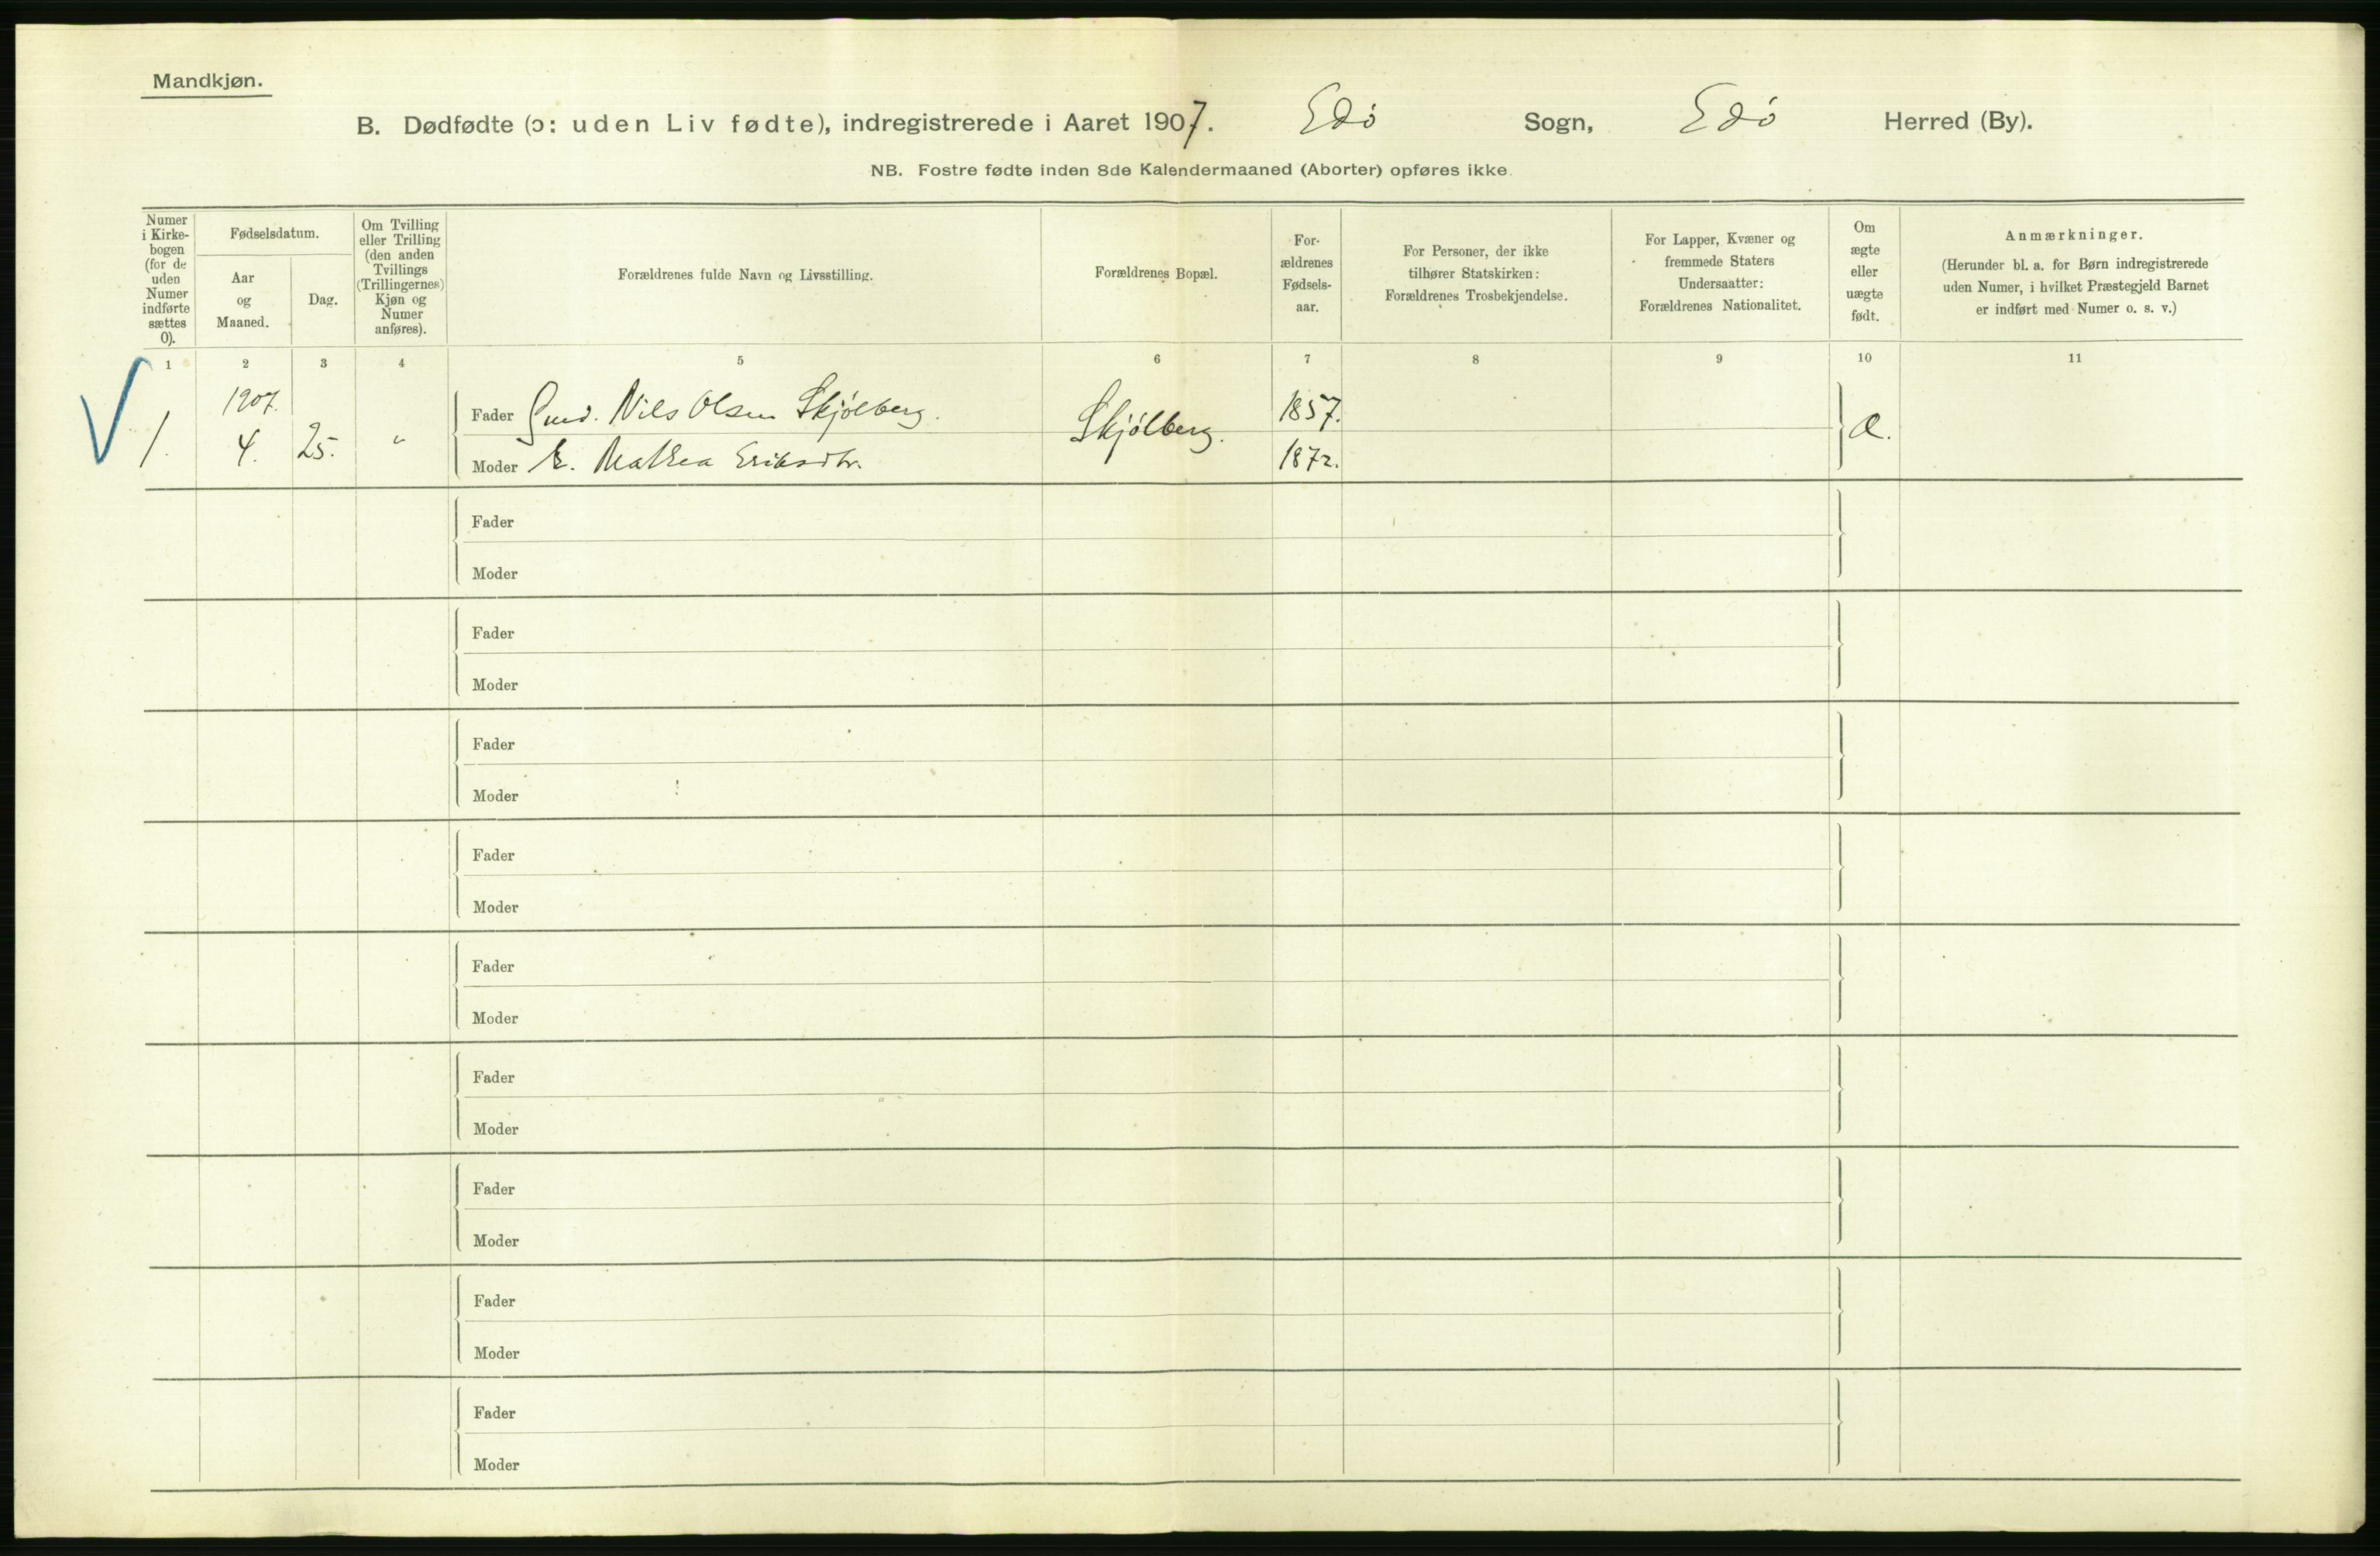 Mandkjøn.
B. Dødfødte (ɔ: uden Liv fødte), indregistrerede i Aaret 1907. Edø Sogn, Edø Herred (By).
NB. Fostre fødte inden 8de Kalendermaaned (Aborter) opføres ikke.
Numer
i Kirke-
bogen
(for de
uden
Numer
indførte
sættes
0).
Fødselsdatum.
Aar
og
Maaned.
Dag.
Om Tvilling
eller Trilling
(den anden
Tvillings
(Trillingernes)
Kjøn og
Numer
anføres).
Forældrenes fulde Navn og Livsstilling.
Forældrenes Bopæl.
For-
ældrenes
Fødsels-
aar.
For Personer, der ikke
tilhører Statskirken:
Forældrenes Trosbekjendelse.
For Lapper, Kvæner og
fremmede Staters
Undersaatter:
Forældrenes Nationalitet.
Om
ægte
eller
uægte
født.
Anmærkninger.
(Herunder bl. a. for Børn indregistrerede
uden Numer, i hvilket Præstegjeld Barnet
er indført med Numer o. s. v.)
1 2 3 4 5 6 7 8 9 10 11
1. 1907. 4. 25. "
Fader Gmd. Nils Olsen Skjølberg. Skjølberg. 1857. Æ.
Moder E. Mathea Eriksdtr. 1872.
Fader
Moder
Fader
Moder
Fader
Moder
Fader
Moder
Fader
Moder
Fader
Moder
Fader
Moder
Fader
Moder
Fader
Moder